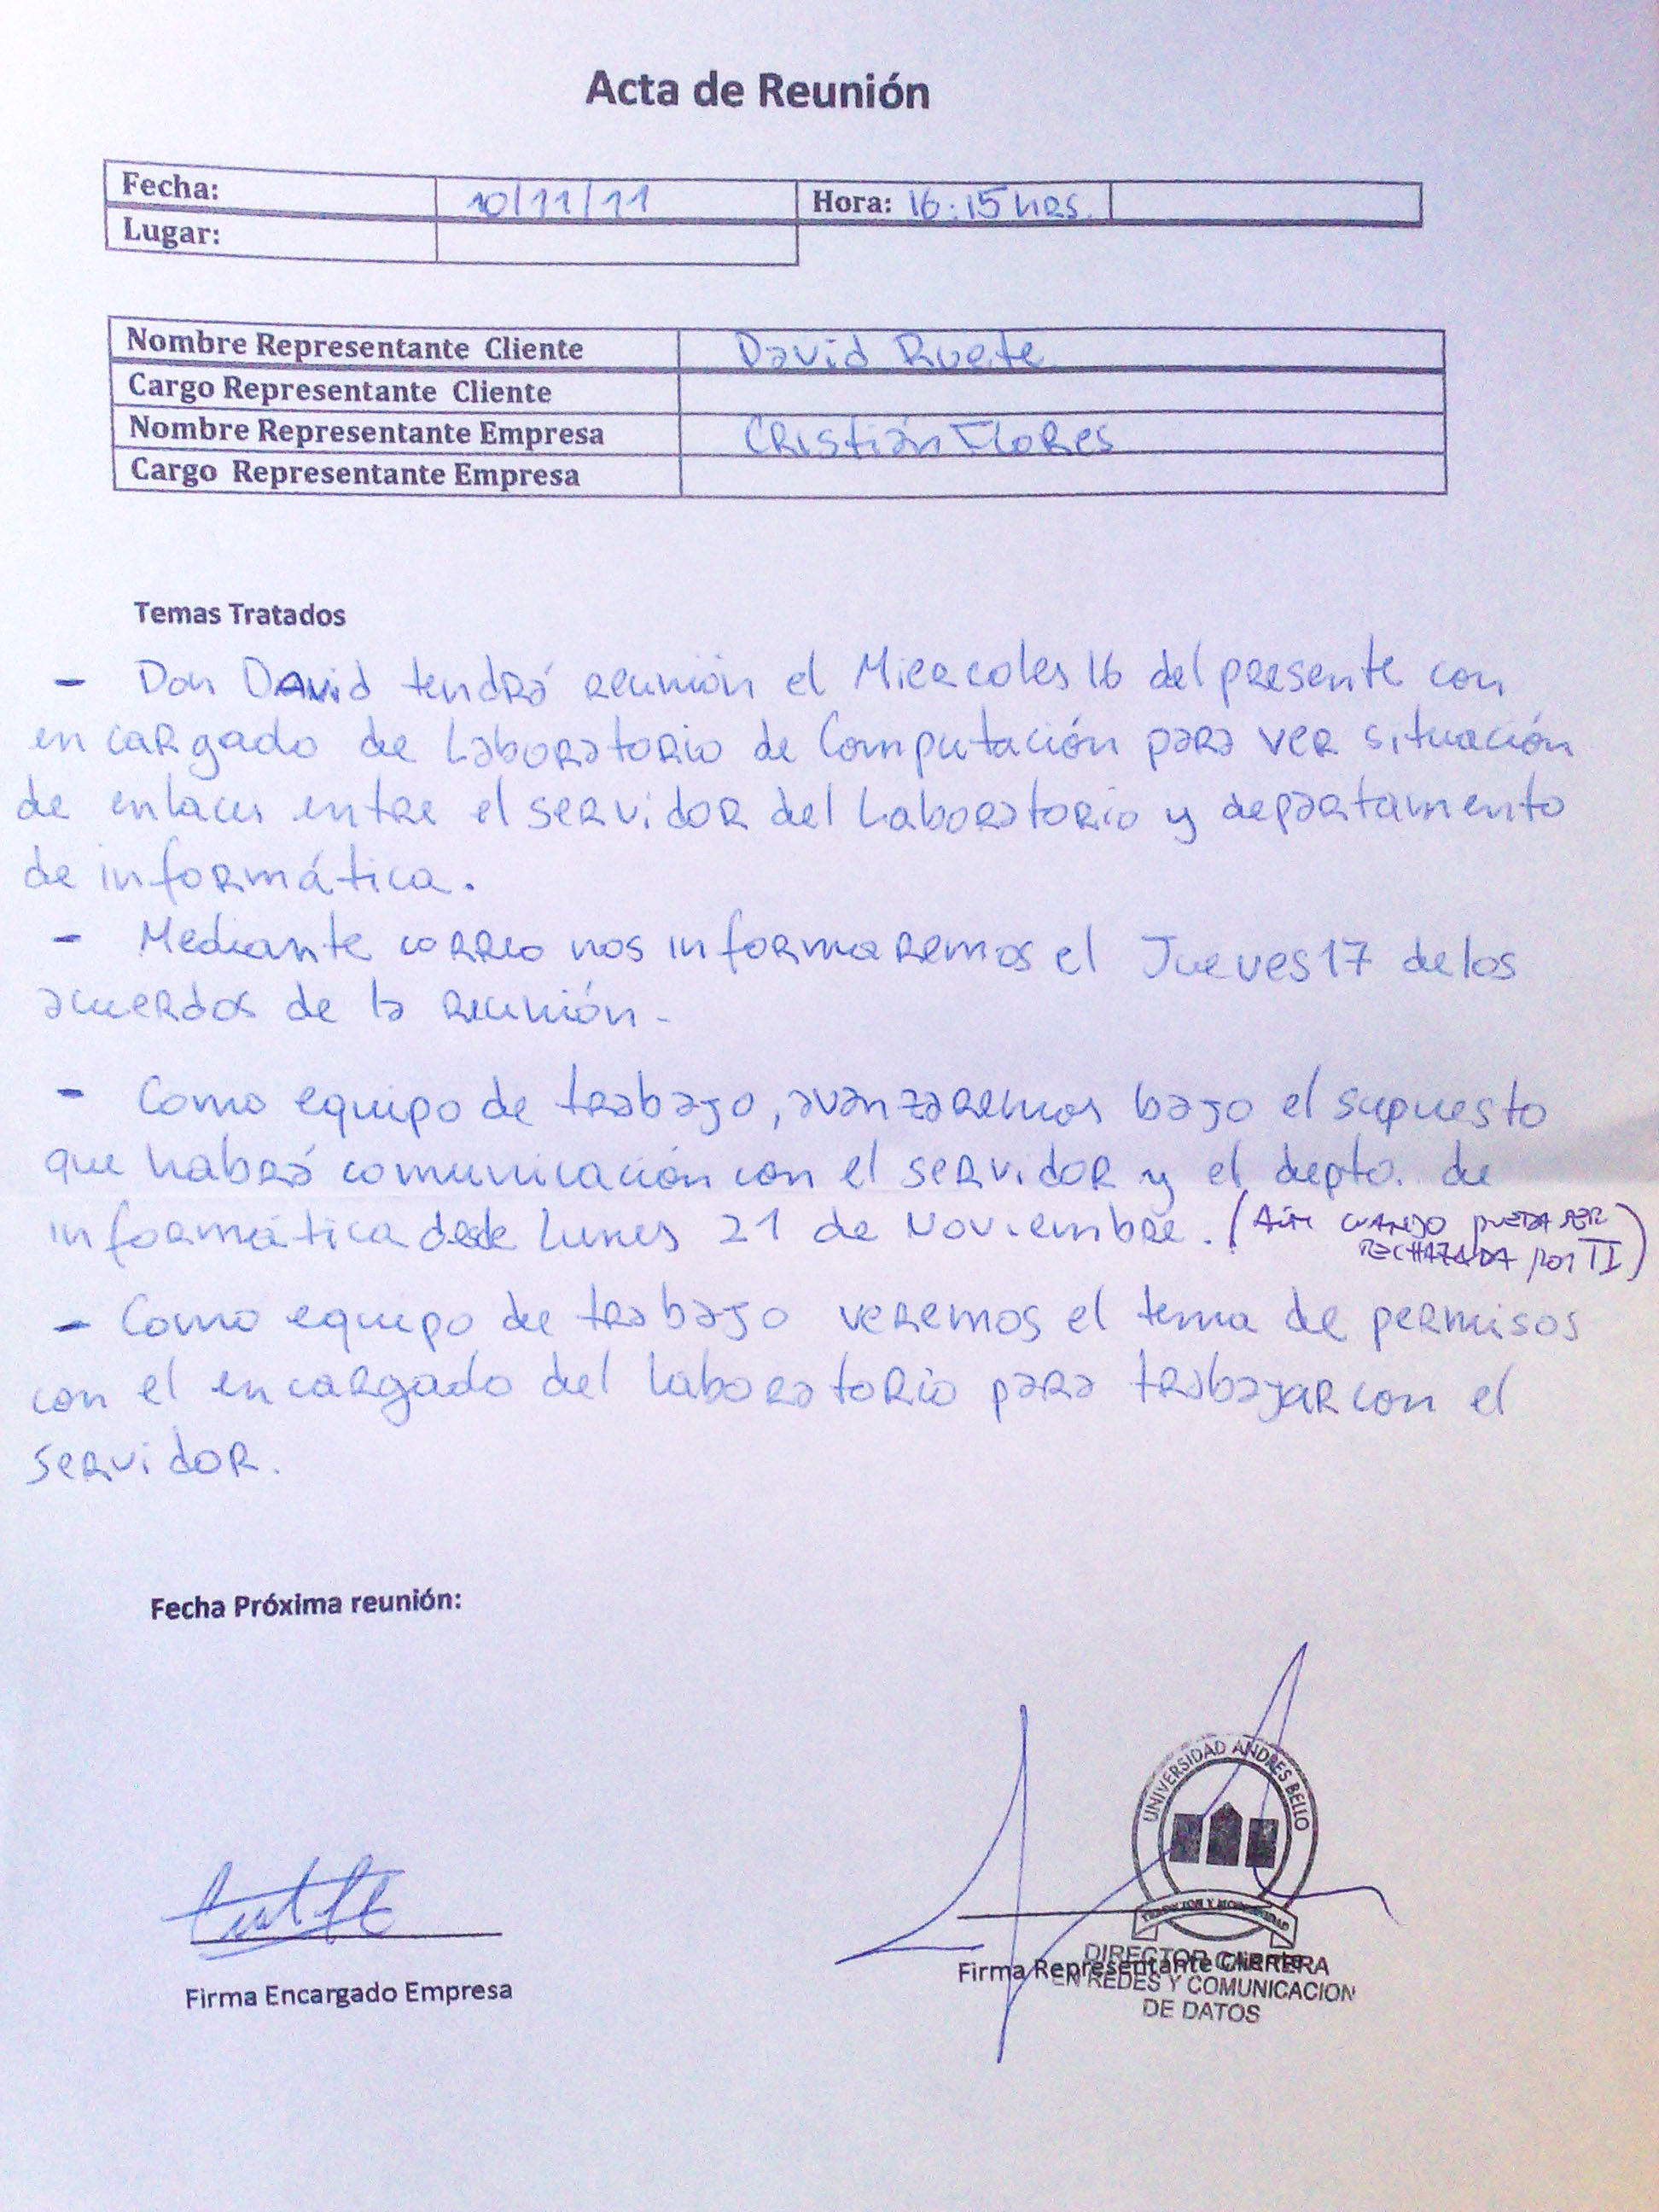 Acta de Reunión
Fecha: 10/11/11 Hora: 16:15 hrs.
Lugar:
Nombre Representante Cliente David Ruete
Cargo Representante Cliente
Nombre Representante Empresa Cristián Flores
Cargo Representante Empresa
Temas Tratados
- Don David tendrá reunión el Miercoles 16 del presente con
encargado de Laboratorio de Computación para ver situación
de enlaces entre el servidor del Laboratorio y departamento
de informática.
- Mediante correo nos informaremos el Jueves 17 de los
acuerdos de la reunión.
- Como equipo de trabajo, avanzaremos bajo el supuesto
que habrá comunicación con el servidor y el depto. de
informática desde Lunes 21 de Noviembre. (Aún cuando pueda ser
rechazada por TI)
- Como equipo de trabajo veremos el tema de permisos
con el encargado del laboratorio para trabajar con el
servidor.
Fecha Próxima reunión:
UNIVERSIDAD ANDRES BELLO
TRADICION Y MODERNIDAD
Firma Encargado Empresa
Firma Representante Cliente
DIRECTOR CARRERA
EN REDES Y COMUNICACION
DE DATOS